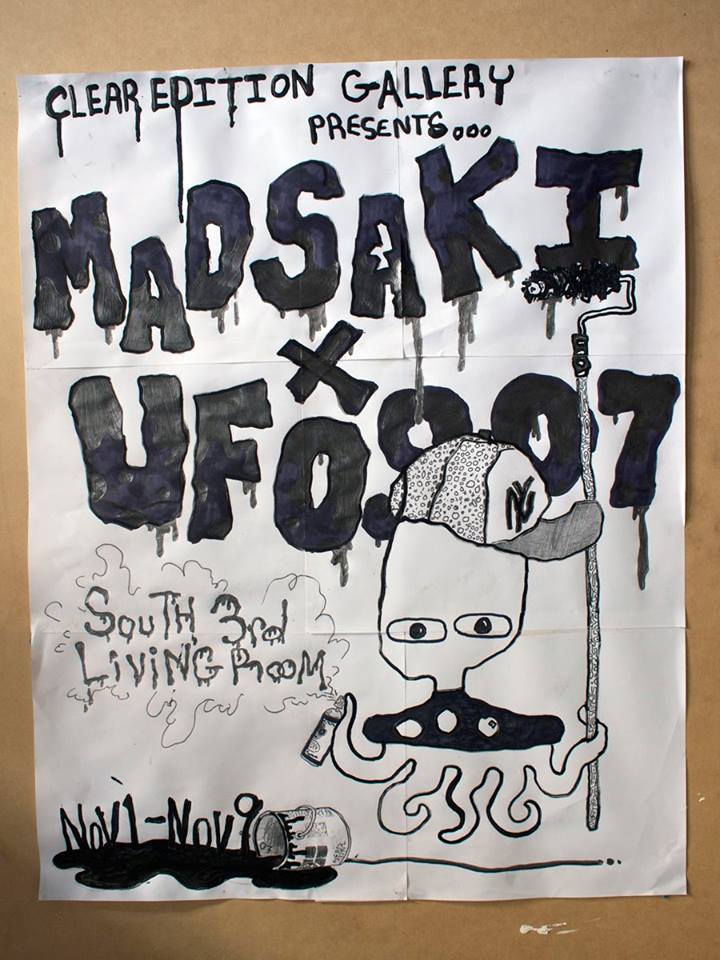 CLEAR EDITION GALLERY
PRESENTS...
MADSAKI
X
UFO.907
NY
SOUTH 3rd
LIVING ROOM
NOV 1 - NOV 9